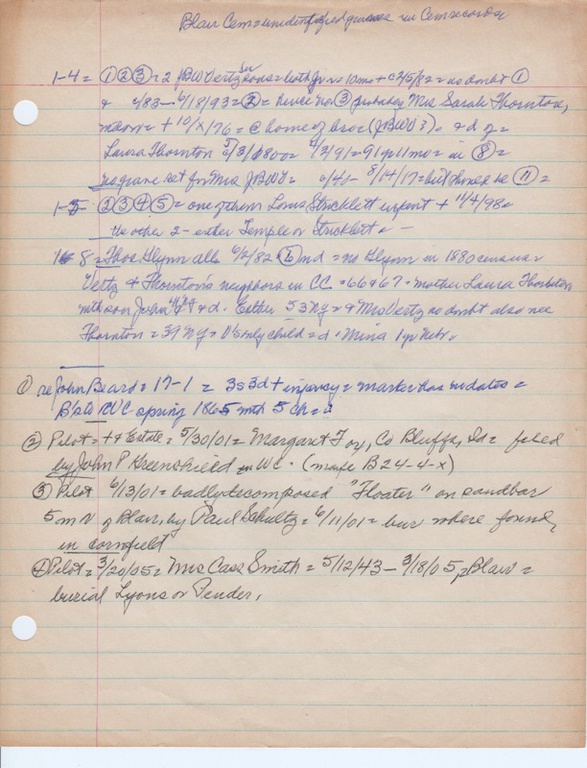 Blair Cem = unidentified graves in Cem records
1-4 = ① ② ③ = 2 JBW Vertz sons = both Jr = 10mo + c 2/5/82 = no doubt ①
& 4/83 - 4/18/93 = ② = hence no ③ probably Mrs Sarah Thornton,
+ 10/x/76 = @ home of bro (JBW V3). & d of =
Laura Thornton 5/3/1800 = 4/2/91 = 91y 11mo = in ⑧ =
no grave set for Mrs JBW V = - 8/14/17 = but should be ⑪ =
1-5 - ② ③ ④ ⑤ = one of them Louis Stricklett infant + 11/4/98 =
the other 2 - either Temple or Stricklett = -
8 = Thos Glynn all 6/2/82 ⑥ md = no Glynn in 1880 census =
Vertz & Thornton's neighbors in CC = 66 & 67 = mother Laura Thornton
with son John & d. Esther 53 NY = & Mrs Vertz no doubt also nee
Thornton = 39 NY = V's only child = d = Mina 1 yr Nebr =
① re John Beard = 17-1 = 3s 3d + infancy = marker has no dates =
WC spring 1865 with 5 ch =
② Pilot = + & Estate = 5/30/01 = Margaret Fox, Co Bluffs, Ia = filed
by John P Greenshield in WC. (maybe B24-4-x)
③ Pilot 6/13/01 = badly decomposed "Floater" on sandbar
5 m N of Blair, by Paul Schultz = 6/11/01 = bur where found,
in cornfield
④ Pilot = 3/20/05 = Mrs Cass Smith = 5/12/43 - 3/18/05, Blair =
burial Lyons or Pender,